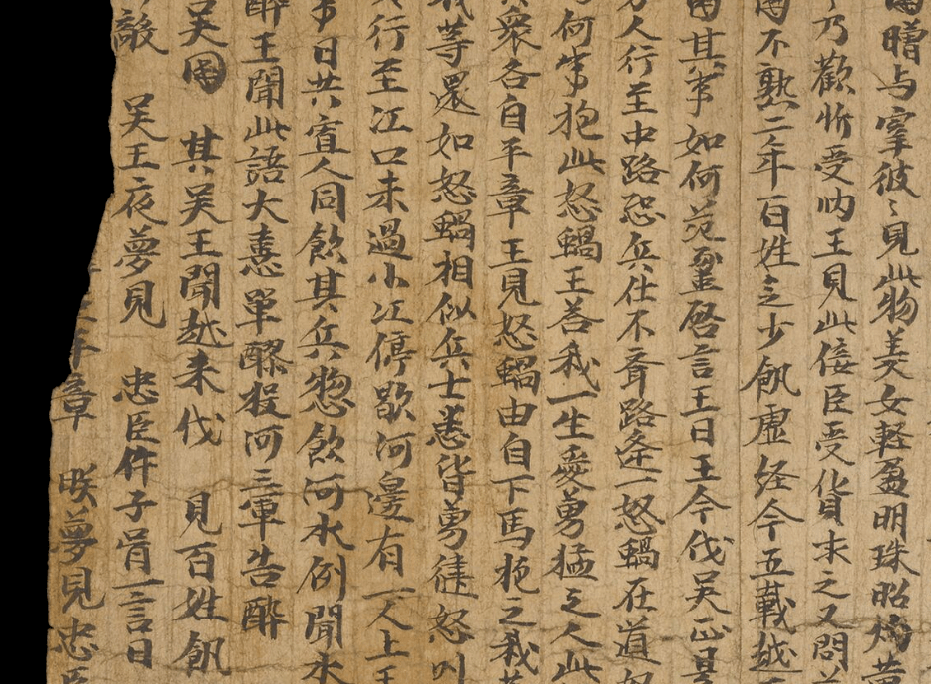 國贈与宰彼々見此物美女輕盈明珠昭灼
乃歡忻受納王見此佞臣受貨求之又問
國不熟二年百姓乏少飢虛經今五載越
國其事如何范蠡啓言王曰王今伐吳正是
人行至中路恐兵仕不齊路逢一怒蝸在道
何常抱此怒蝸王荅我一生愛勇猛之人此
衆各自平章王見怒蝸由自下馬抱之我
我等還如怒蝸相似兵士悉皆勇健怒叫
行至江口未過小江停歇河邊有一人上王
日共寡人同飲其兵惣飲河水例聞水
醉王聞此語大憙單醪投河三軍告醉
吳國 其吳王聞越來伐 見百姓飢
敵 吳王夜夢見 忠臣仵子胥一言曰
章 朕夢見忠臣